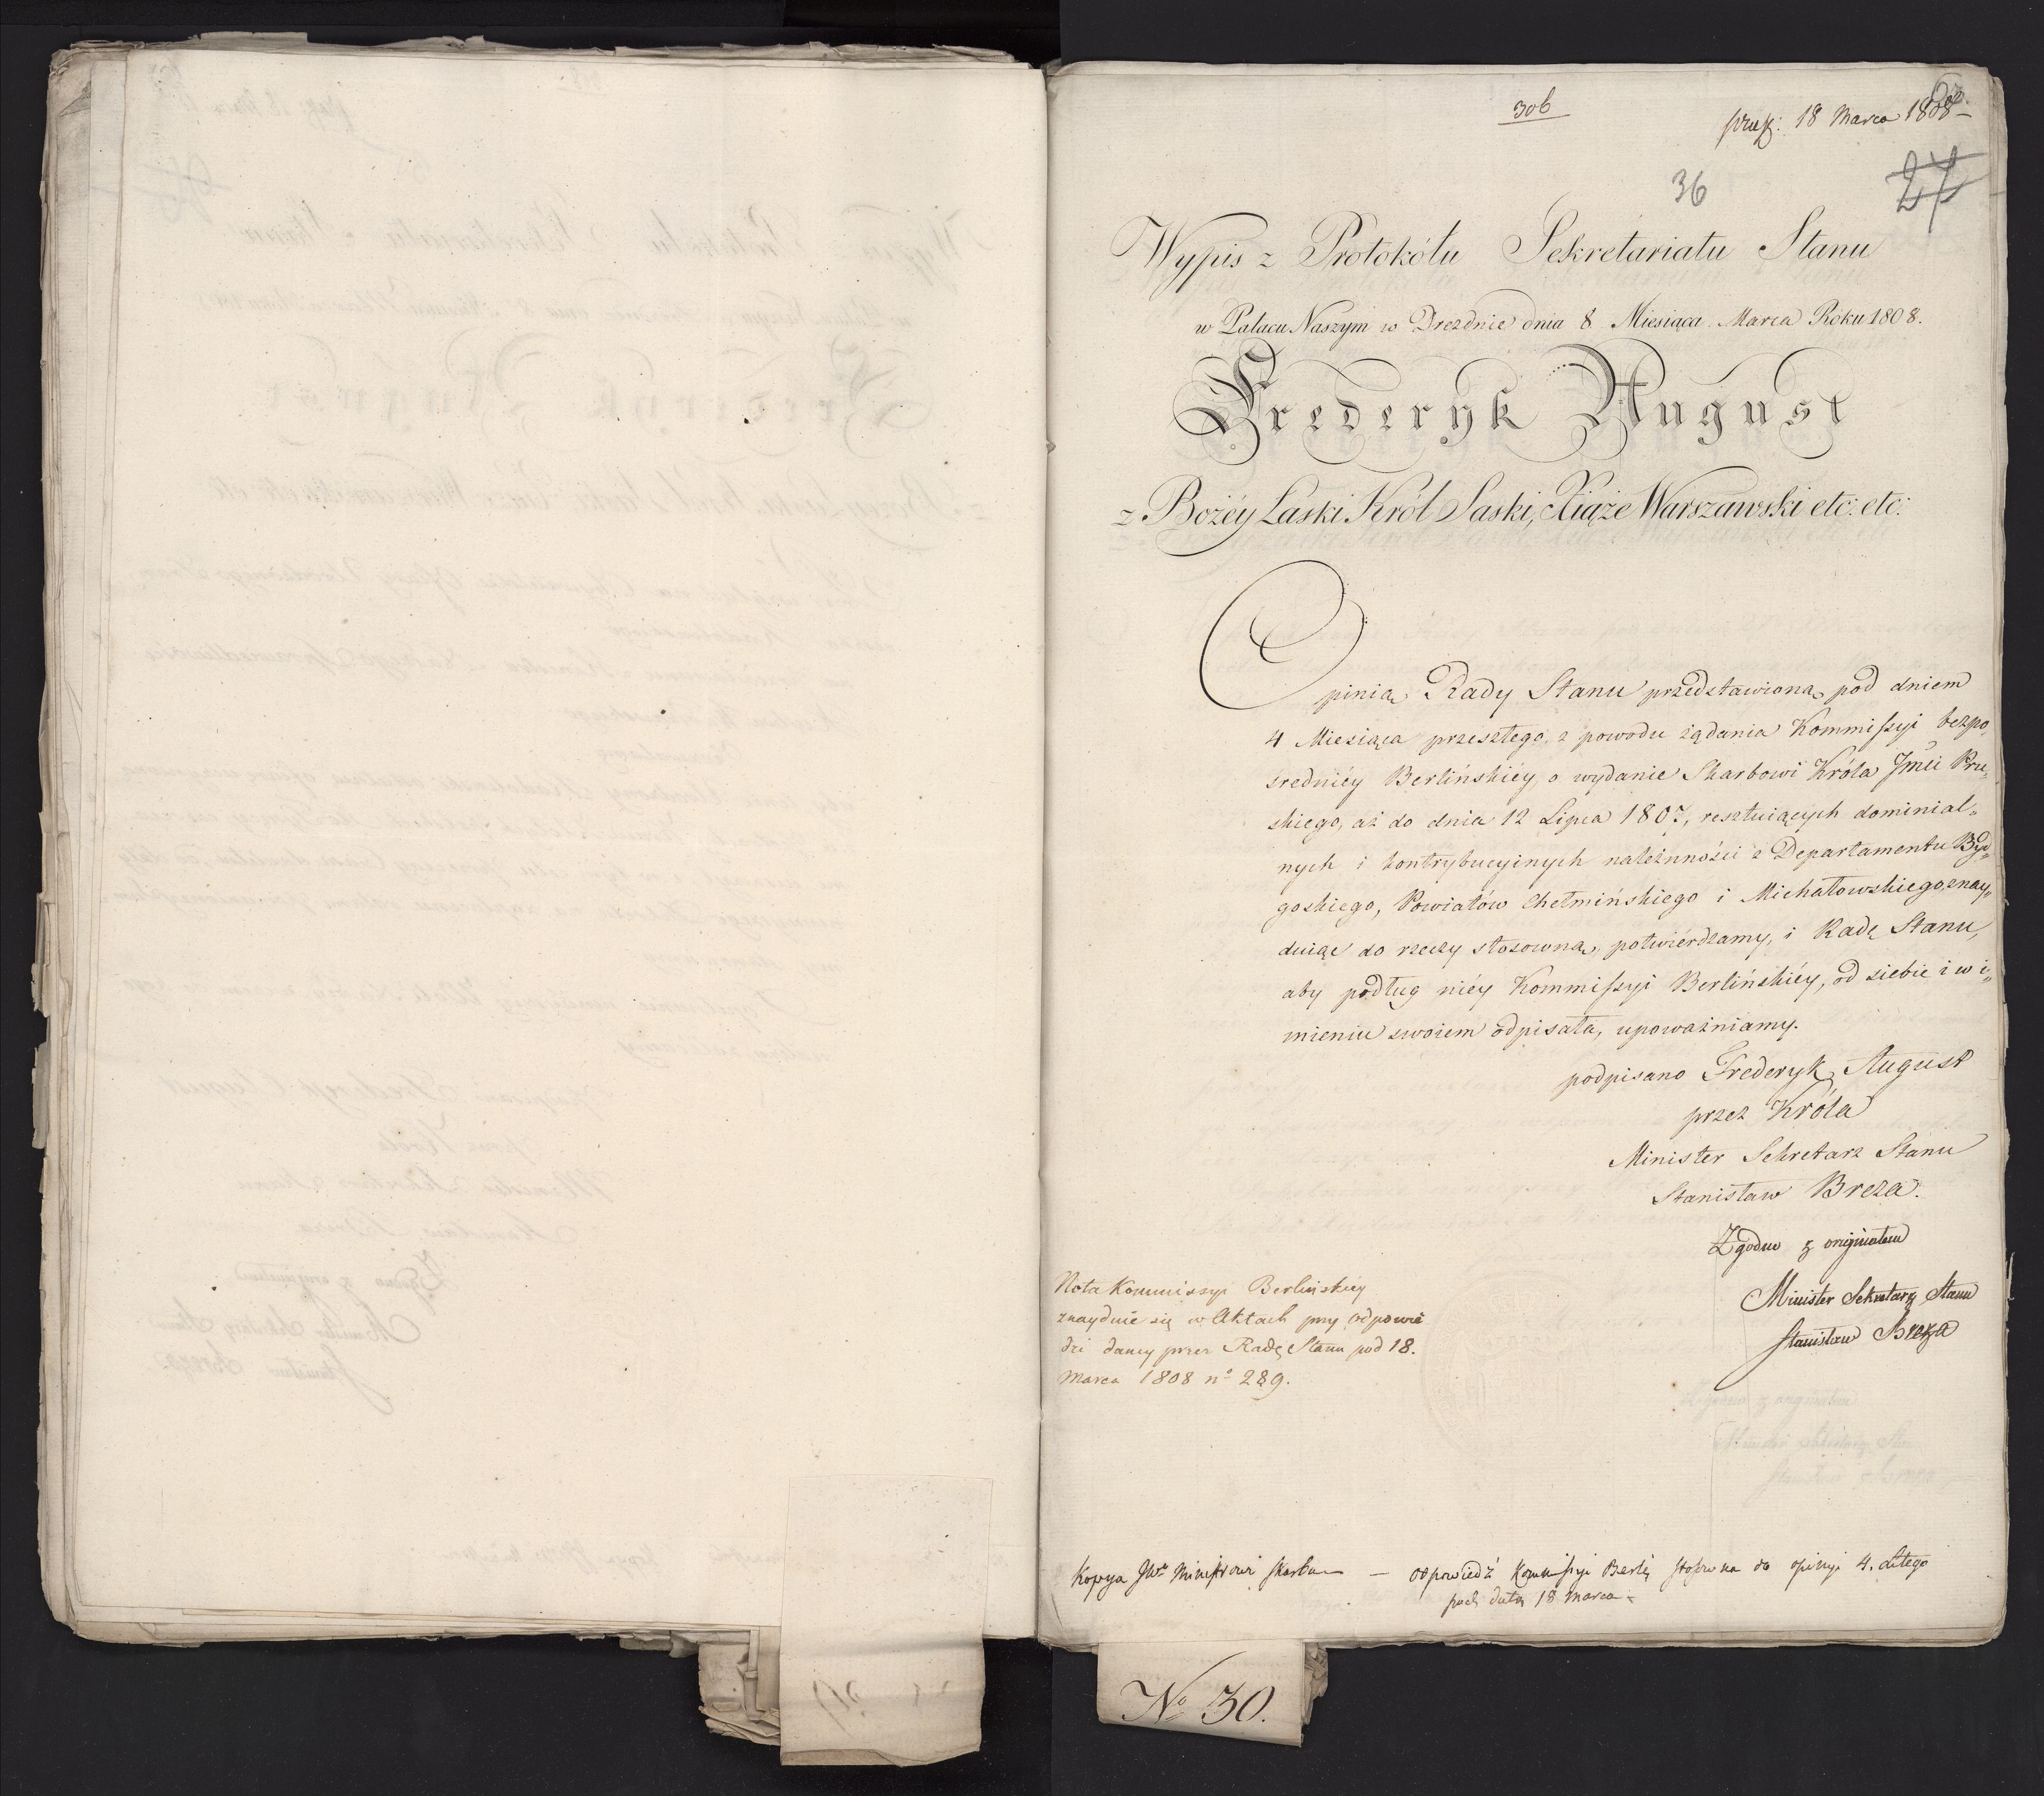 306
praes: 18 Marca 1808
36
27
Wypis z Protokółu Sekretariatu Stanu
w Pałacu Naszym w Dreźdnie dnia 8 Miesiąca Marca Roku 1808.
Frederyk August
z Bożéy Łaski Król Saski, Xiąże Warszawski etc: etc:
Opinią Rady Stanu przedstawioną pod dniem
4 Miesiąca przeszłego, z powodu żądania Kommissyi bezpo„
sredniéy Berlińskiéy, o wydanie Skarbowi Króla Jmci Pru„
skiego, aż do dnia 12 Lipca 1807, resztuiących dominial„
nych i kontrybucyinych należnności z Departamentu Byd„
goskiego, Powiatów Chełmińskiego i Michałowskiego, znay„
duiąc do rzeczy stosowną, potwiérdzamy, i Radę Stanu,
aby podług niéy Kommissyi Berlińskiéy, od siebie i w i„
mieniu swoiem odpisała, upoważniamy.
podpisano Frederyk August
przez Króla
Minister Sekretarz Stanu
Stanisław Breza.
Zgodno z originałem
Minister Sekretarz Stanu
Stanisław Breza
Nota Kommissyi Berlinskiey
znayduie się w Aktach przy odpowie
dzi daney przez Radę Stanu pod 18.
Marca 1808 nº 289.
Kopya JWu Ministrowi Skarbu — odpowiedź Komissyi Berlń stosowna do opinyi 4. Lutego
pod datą 18 Marca
No 30.